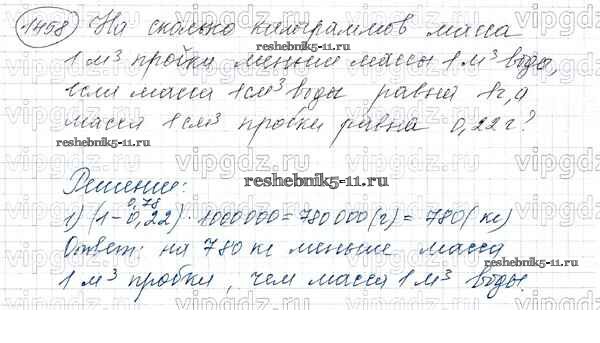 1458) На сколько килограммов масса
1 м³ пробки меньше массы 1 м³ воды,
если масса 1 см³ воды равна 1г, а
масса 1 см³ пробки равна 0,22 г?
Решение:
0,78
1) (1-0,22) · 1000000 = 780000(г) = 780(кг)
Ответ: на 780 кг меньше масса
1 м³ пробки, чем масса 1 м³ воды.
vipgdz.ru
reshebnik5-11.ru